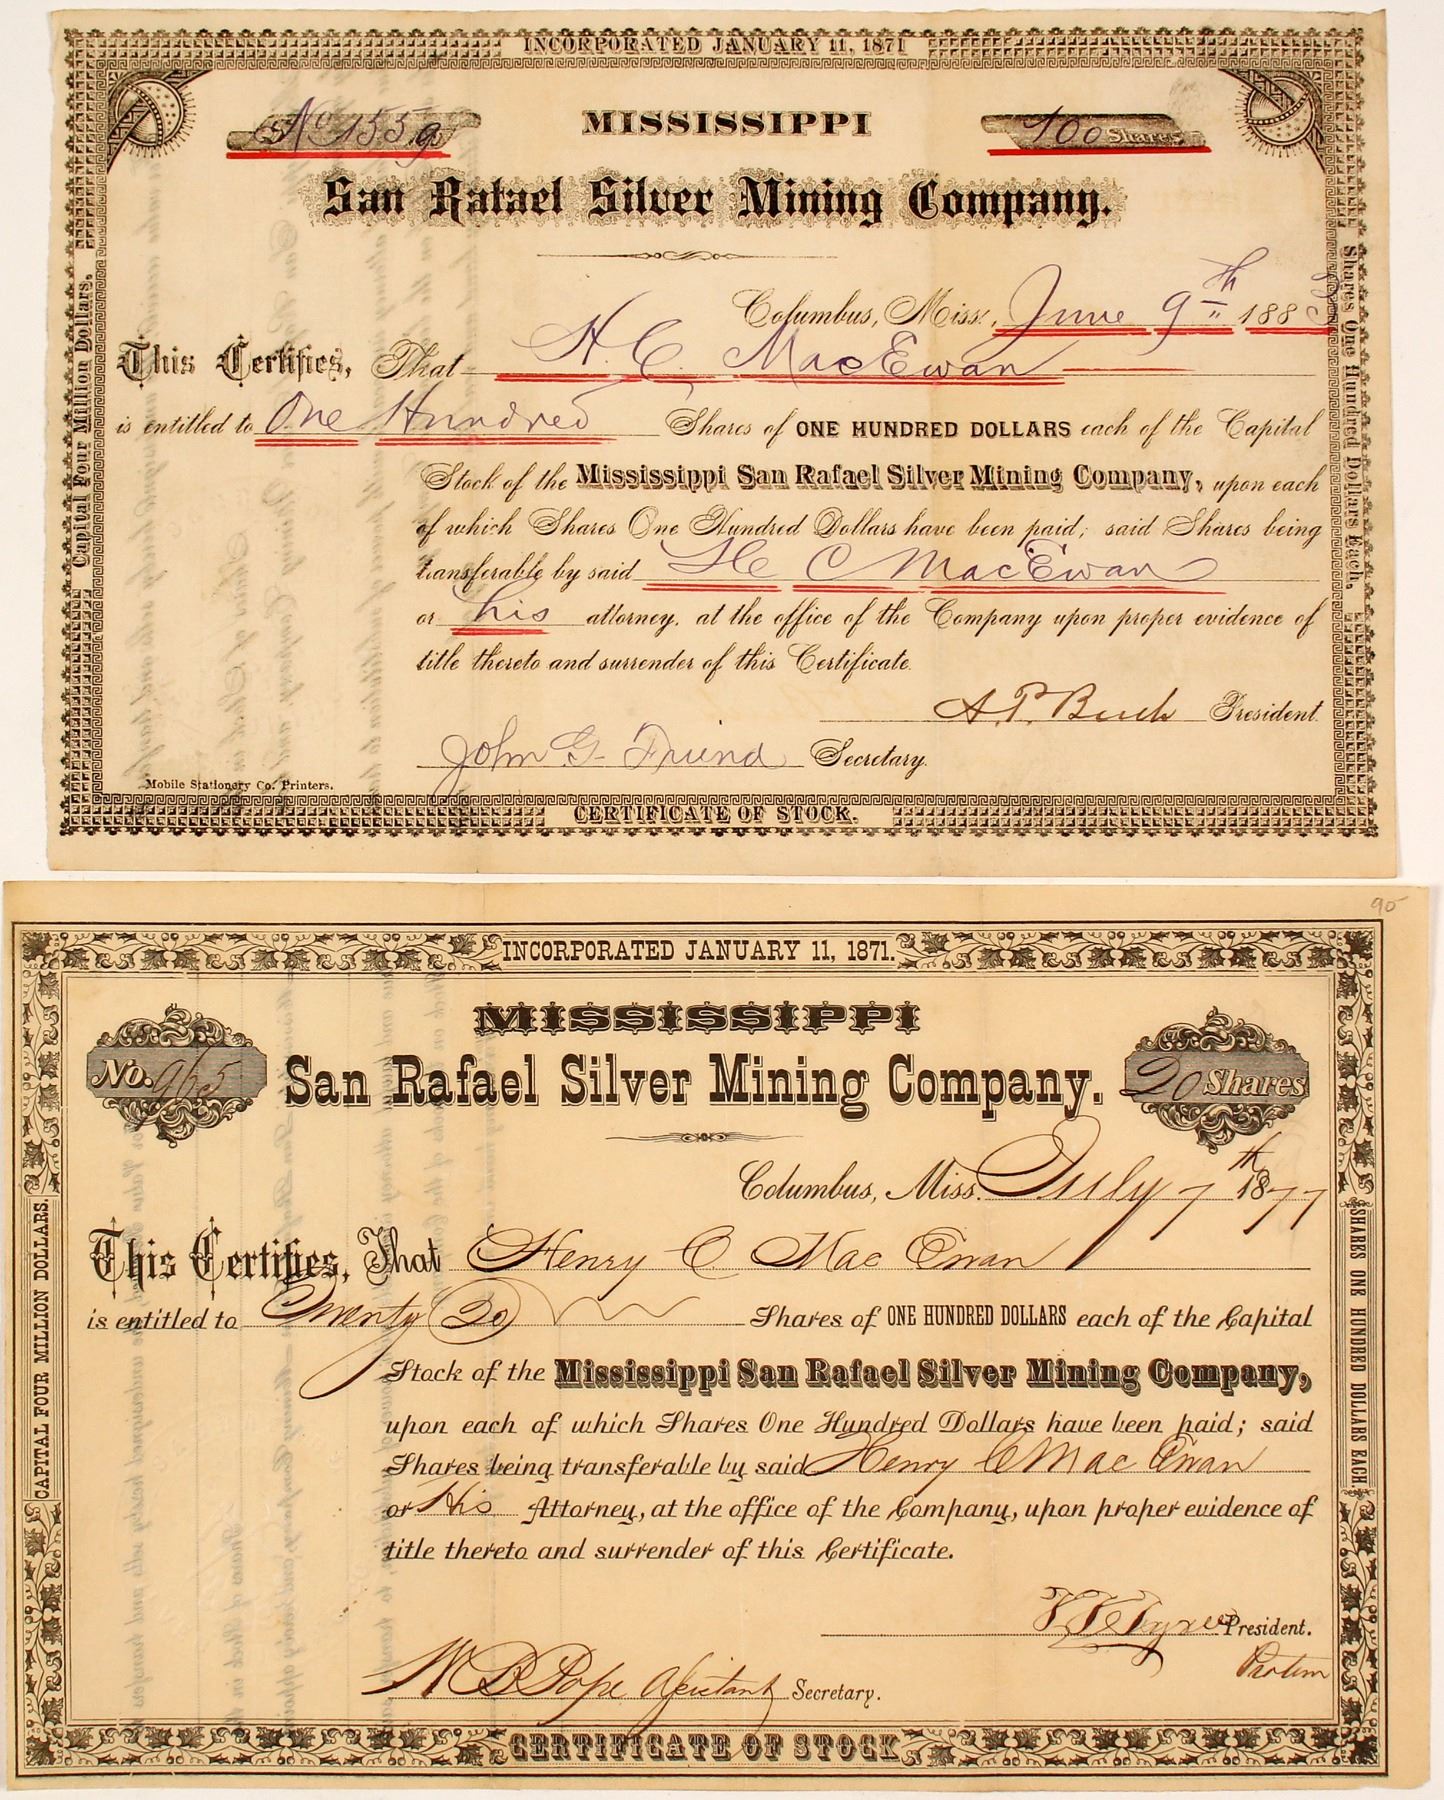 INCORPORATED JANUARY 11, 1871
No 1559
MISSISSIPPI
100 Shares.
San Rafael Silver Mining Company.
Columbus, Miss., June 9th 1883
This Certifies, That H. C. MacEwan
is entitled to One Hundred Shares of ONE HUNDRED DOLLARS each of the Capital
Stock of the Mississippi San Rafael Silver Mining Company, upon each
of which Shares One Hundred Dollars have been paid; said Shares being
transferable by said H C MacEwan
or his attorney, at the office of the Company upon proper evidence of
title thereto and surrender of this Certificate.
President.
John G. Friend Secretary.
Mobile Stationery Co. Printers.
CERTIFICATE OF STOCK.
Capital Four Million Dollars.
Shares One Hundred Dollars Each.
90
INCORPORATED JANUARY 11, 1871.
MISSISSIPPI
No. 965
San Rafael Silver Mining Company.
20 Shares
Columbus, Miss. July 7th 1877
This Certifies, That Henry C Mac Ewan
is entitled to Twenty (20) Shares of ONE HUNDRED DOLLARS each of the Capital
Stock of the Mississippi San Rafael Silver Mining Company,
upon each of which Shares One Hundred Dollars have been paid; said
Shares being transferable by said Henry C Mac Ewan
or His Attorney, at the office of the Company, upon proper evidence of
title thereto and surrender of this Certificate.
President.
Protem
W B Pope Assistant Secretary.
CERTIFICATE OF STOCK
CAPITAL FOUR MILLION DOLLARS.
SHARES ONE HUNDRED DOLLARS EACH.